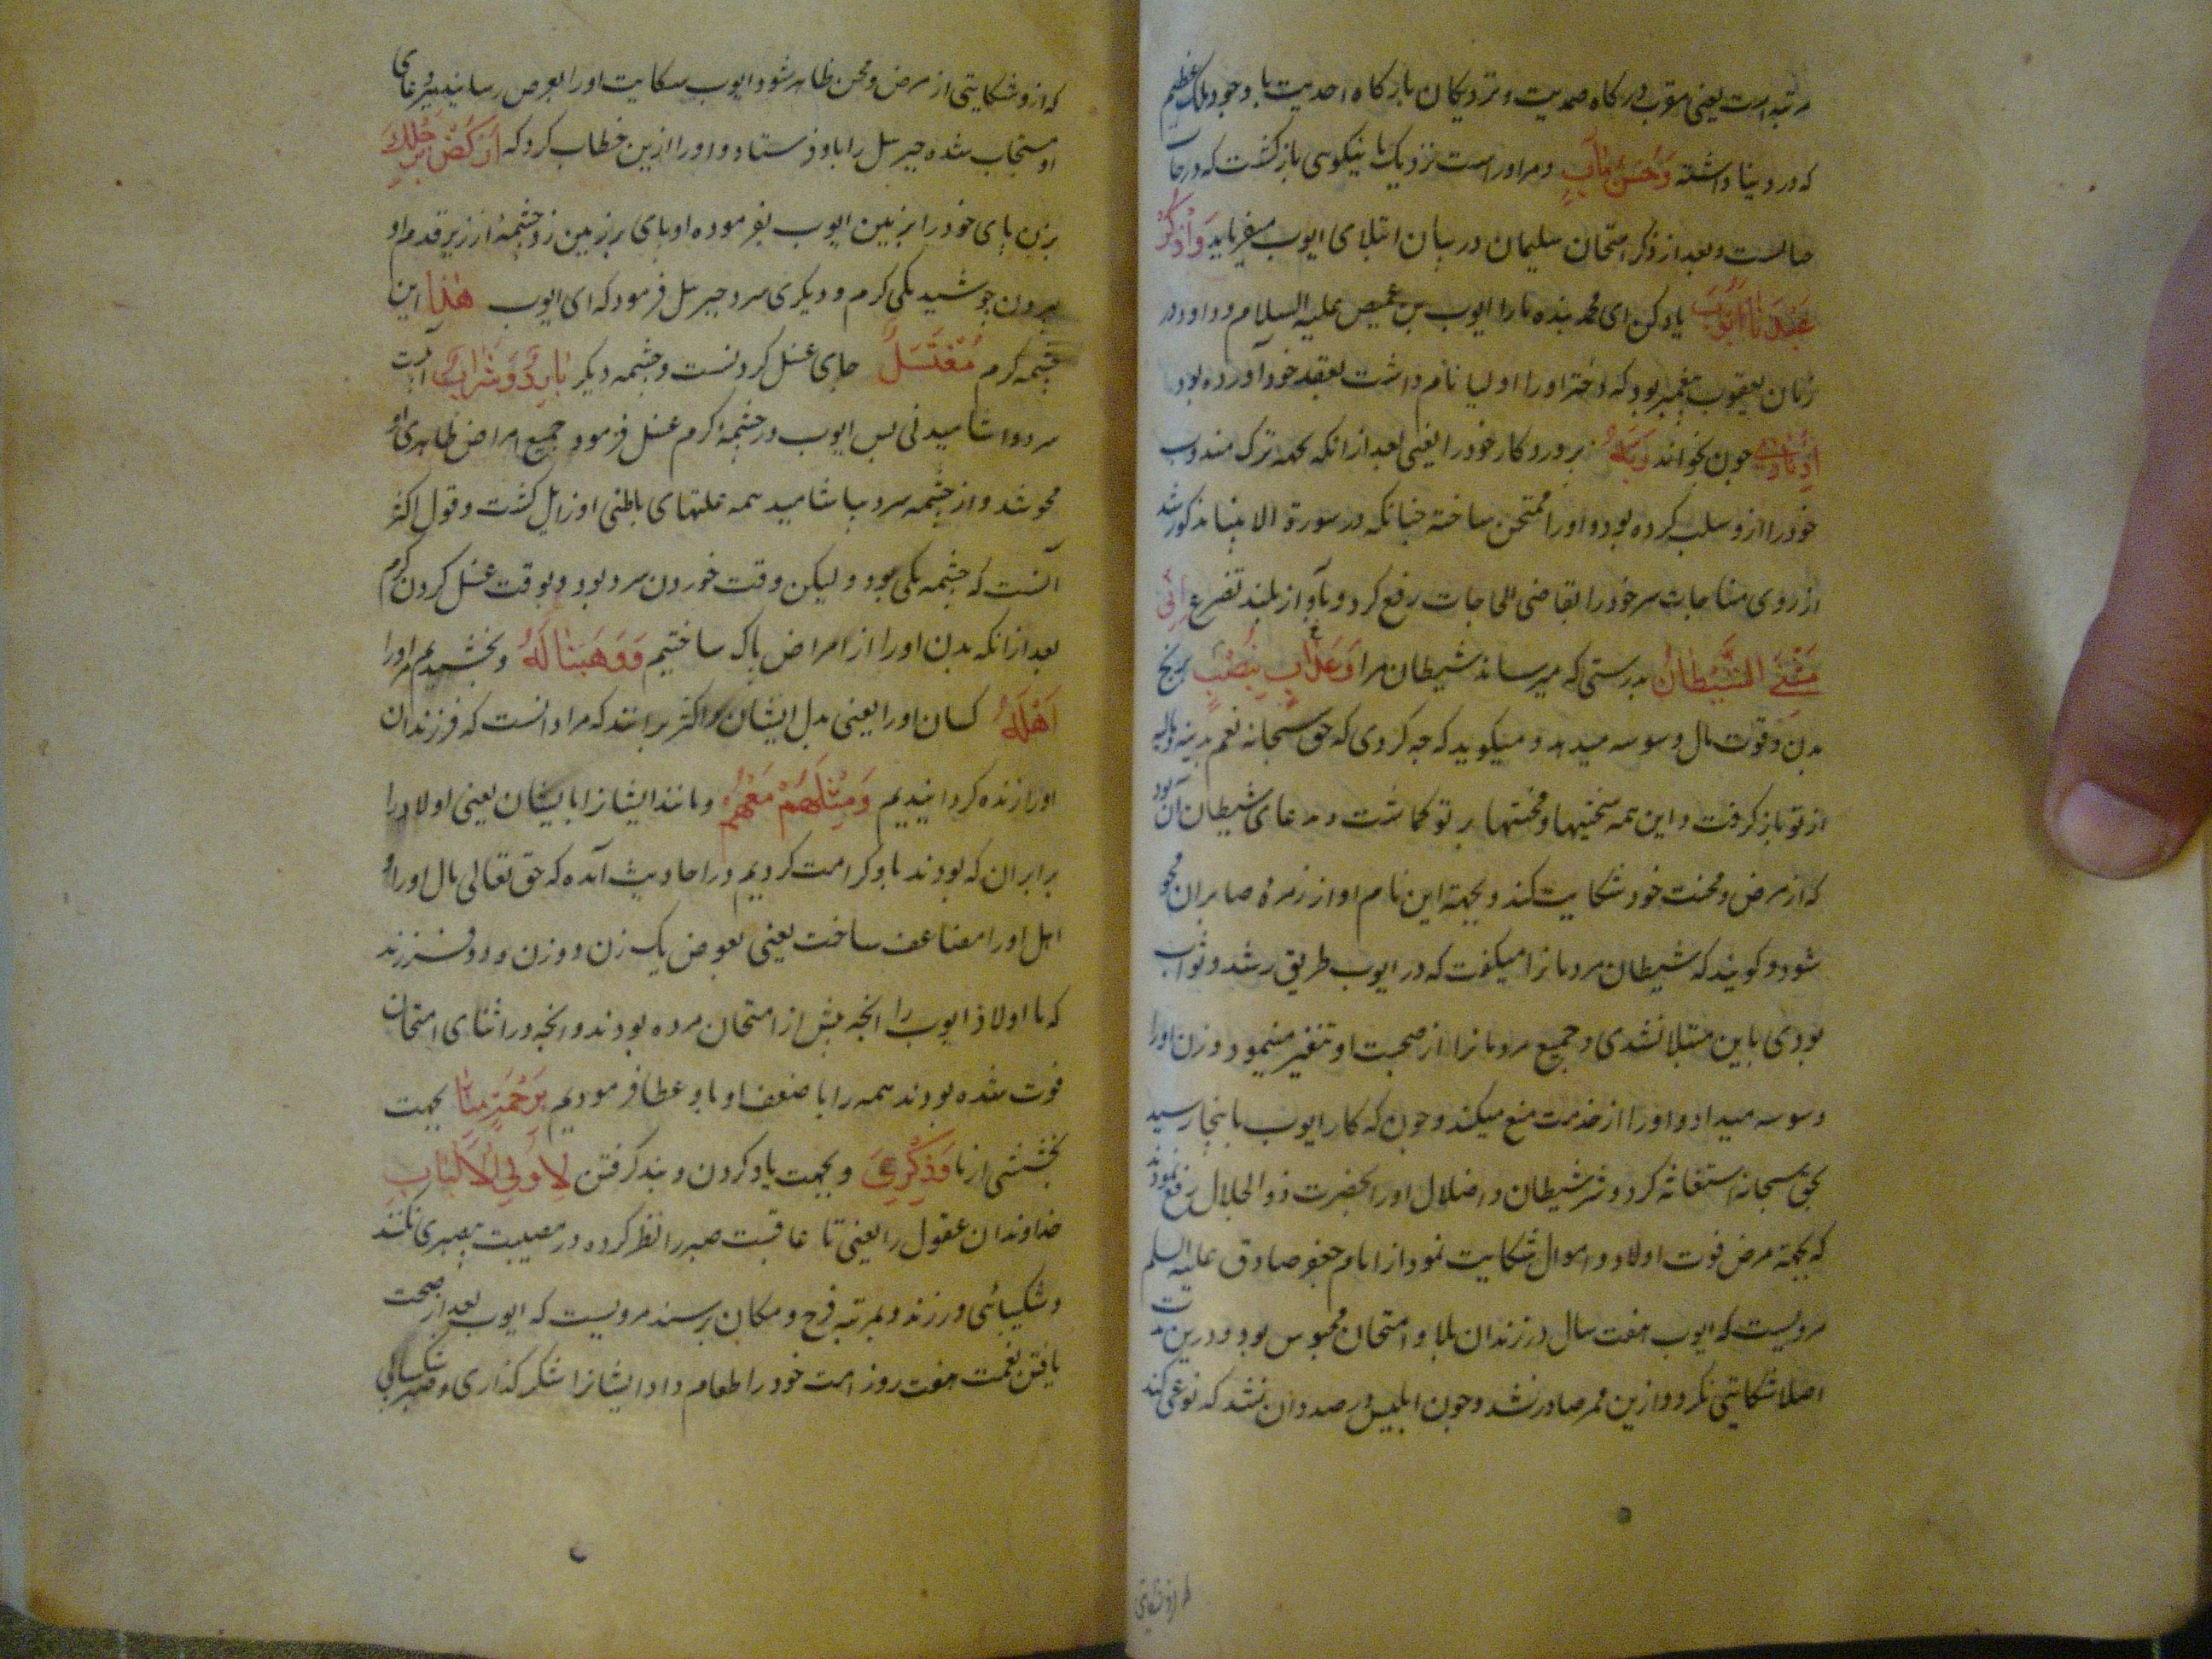 مرتبه است یعنی مقرب درکاه صمدیت و نزدیکان بارکاه احدیت با وجود ملک عظیم
که در دنیا داشته وَحُسنَ مَآبٍ و مر اوراست نزدیک ما نیکوی بازکشت که درجات
و بعد از ذکر امتحان سلیمان در بیان ابتلای ایوب میفرماید وَاذکُر
عَبدَنا اَیّوبَ یاد کن ای محمد بنده ما را ایوب بن عیص علیه السلام و او در
زمان یعقوب پیغمبر بود که دختر او را اولیا نام داشت بعقد خود آورده بود
اِذ نادی چون بخواند رَبَّهُ پروردکار خود را یعنی بعد از انکه بجهته ترک مندوب
خود را ازو سلب کرده بود و او را ممتحن ساخته چنانکه در سورة الانبیا مذکور شد
از روی مناجات سر خود را بقاضی الحاجات رفع کرد و بآواز بلند تضرع اَنّی
مَسَّنِیَ الشَّیطانُ بدرستی که میرساند شیطان مرا وَعَذابٍ بِنُصبٍ برنج
بدن و قوت مال و وسوسه میدهد و میکوید که چه کردی که حق سبحانه نعم بدینه و مالیه
از تو باز کرفت و این همه سختیها و محنتها بر تو کماشت و مدعای شیطان آن بود
که از مرض و محنت خود شکایت کند و بجهته این نام او از زمرهٔ صابران محو
شود و کویند که شیطان مردمانرا میکفت که در ایوب طریق رشد و ثواب
بودی باین مبتلا نشدی و جمیع مردمانرا از صحبت او تنفیر مینمود و زن او را
وسوسه میداد و او را از خدمت منع میکند و چون که کار ایوب باینجا رسید
بحق سبحانه استغاثه کرد و شر شیطان و اضلال او را بحضرت ذو الجلال رفع نمود نه
که بجهته مرض فوت اولاد و اموال شکایت نمود از امام جعفر صادق علیه السلم
مرویست که ایوب هفت سال در زندان بلا و امتحان محبوس بود و درین مدت
اصلا شکایتی نکرد و ازین ممر صادر نشد و چون ابلیس در صدد آن شد که نوعی کند
که ازو شکایتی
که ازو شکایتی از مرض و محن ظاهر شود ایوب سکایت او را بعرض رسانید
او مستجاب شده جبرئیل را باو فرستاد و او را ازین خطاب کرد که اُرکُض بِرِجلِکَ
بزن پای خود را بزمین ایوب بفرموده او پای بر زمین زد چشمهٔ از زیر قدم او
بیرون جوشید یکی کرم و دیکری سرد جبرئیل فرمود که ای ایوب هٰذا این
چشمه کرم مُغتَسَلٌ جای غسل کردنست و چشمه دیکر بارِدٌ وَشَرابٌ آبیست
سرد و اشامیدنی پس ایوب در چشمهٔ کرم غسل فرمود و جمیع امراض ظاهری او
محو شد و از چشمه سرد بیاشامید همه علتهای باطنی او زایل کشت و قول اکثر
آنست که چشمه یکی بود و لیکن وقت خوردن سرد بود و بوقت غسل کردن کرم
بعد از انکه بدن او را از امراض پاک ساختیم وَوَهَبنا لَهُ و بخشیدیم مر او را
اَهلَهُ کسان او را یعنی بدل ایشان و اکثر برانند که مراد انست که فرزندان
او را زنده کردانیدیم وَمِثلَهُم مَعَهُم و مانند ایشانرا با ایشان یعنی اولاد را
برابران که بودند باو کرامت کردیم در احادیث آمده که حق تعالی مال او را و
اهل او را مضاعف ساخت یعنی بعوض یک زن دو زن و دو فرزند
که ما اولاد ایوب را انچه پیش از امتحان مرده بودند و انچه در اثنای امتحان
فوت شده بودند همه را با ضعف او باو عطا فرمودیم رَحمَةً مِنّا بجهت
بخششی از ما وَذِکری و بجهت یاد کردن و پند کرفتن لِاُولِی الاَلبابِ
خداوندان عقول را یعنی تا عاقبت صبر را نظر کرده در مصیبت بیصبری نکنند
و شکیبائی ورزند و بمرتبه فرح و مکان برسند مرویست که ایوب بعد از صحت
یافتن نعمت هفت روز امت خود را طعام داد و ایشانرا شکر کذاری و صبر